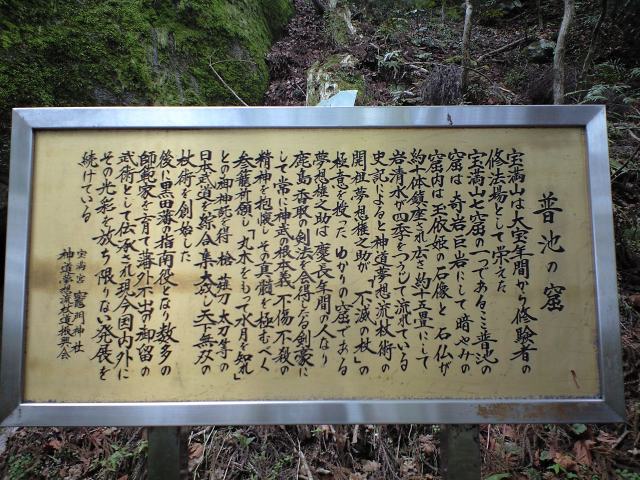 普池の窟
宝満山は大宝年間から修験者の
修法場として栄えた
宝満山七窟の一つであるここ普池の
窟は奇岩巨岩にして暗やみの
窟内は玉依姫の石像と石仏が
約十体鎮座され広さ約十五畳にして
岩清水が四季をつうじて流れている
史記によると神道夢想流杖術の
開祖夢想権之助が「不滅の杖」の
極意を授ったゆかりの窟である
夢想権之助は慶長年間の人なり
鹿島香取の剣法を会得したる剣豪に
して常に神武の根本義不傷不殺の
精神を抱懐しその真髄を極むべく
参籠祈願し「丸木をもって水月を知れ」
との御神託を得槍薙刀太刀等の
日本武道を綜合集大成し天下無双の
杖術を創始した
後に黒田藩の指南役となり数多の
師範家を育て藩外不出の御留の
武術として伝承され現今国内外に
その光彩を放ち限りない発展を
続けている
宝満宮 竈門神社
神道夢想流杖道振興会